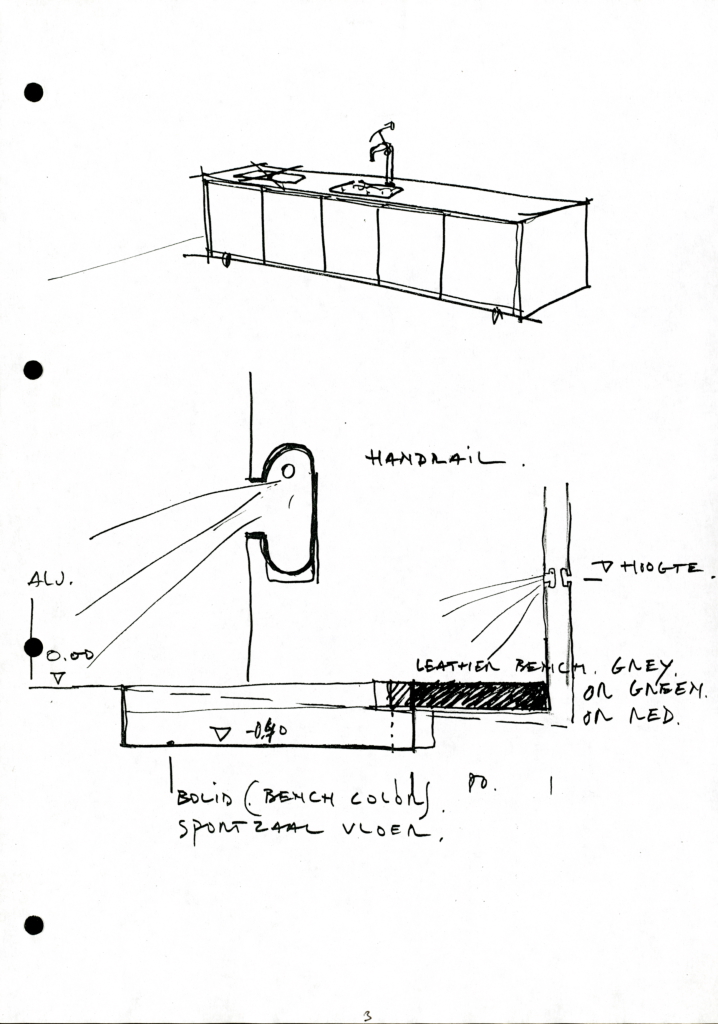 HANDRAIL.
ALU.
▽ HOOGTE.
0.00
LEATHER BENCH. GREY.
OR GREEN.
OR RED.
BOLID (BENCH COLOR).
SPORTZAAL VLOER.
3